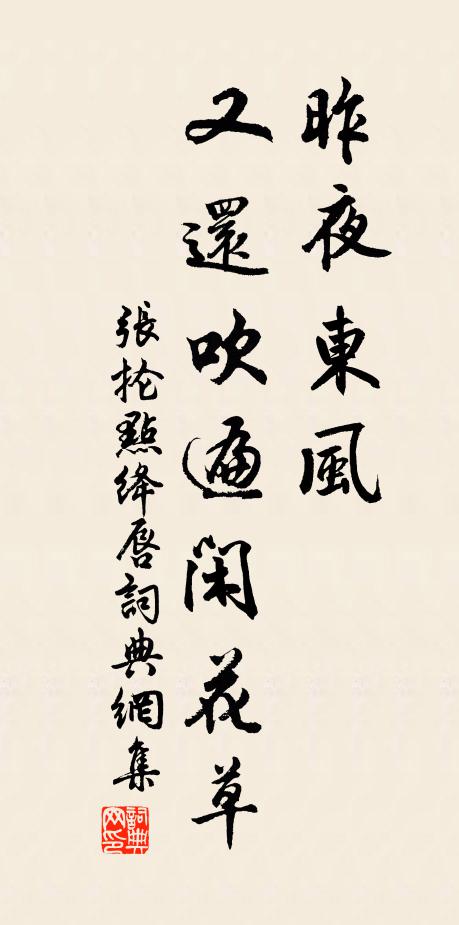 昨夜東風
又還吹遍閑花草
張掄點絳唇詞典網集
詞典網印